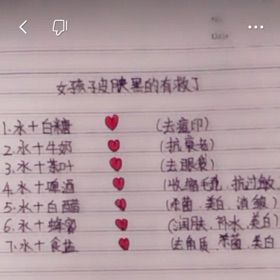 女孩子皮肤黑的有救了
1.水+白糖 (去痘印)
2.水+牛奶 (抗衰老)
3.水+茶叶 (去眼袋)
4.水+啤酒 (收缩毛孔,抗过敏
5.水+白醋 (杀菌.美白.消敏)
6.水+蜂蜜 (润肤.补水.美白)
7.水+食盐 (去角质.杀菌.美白